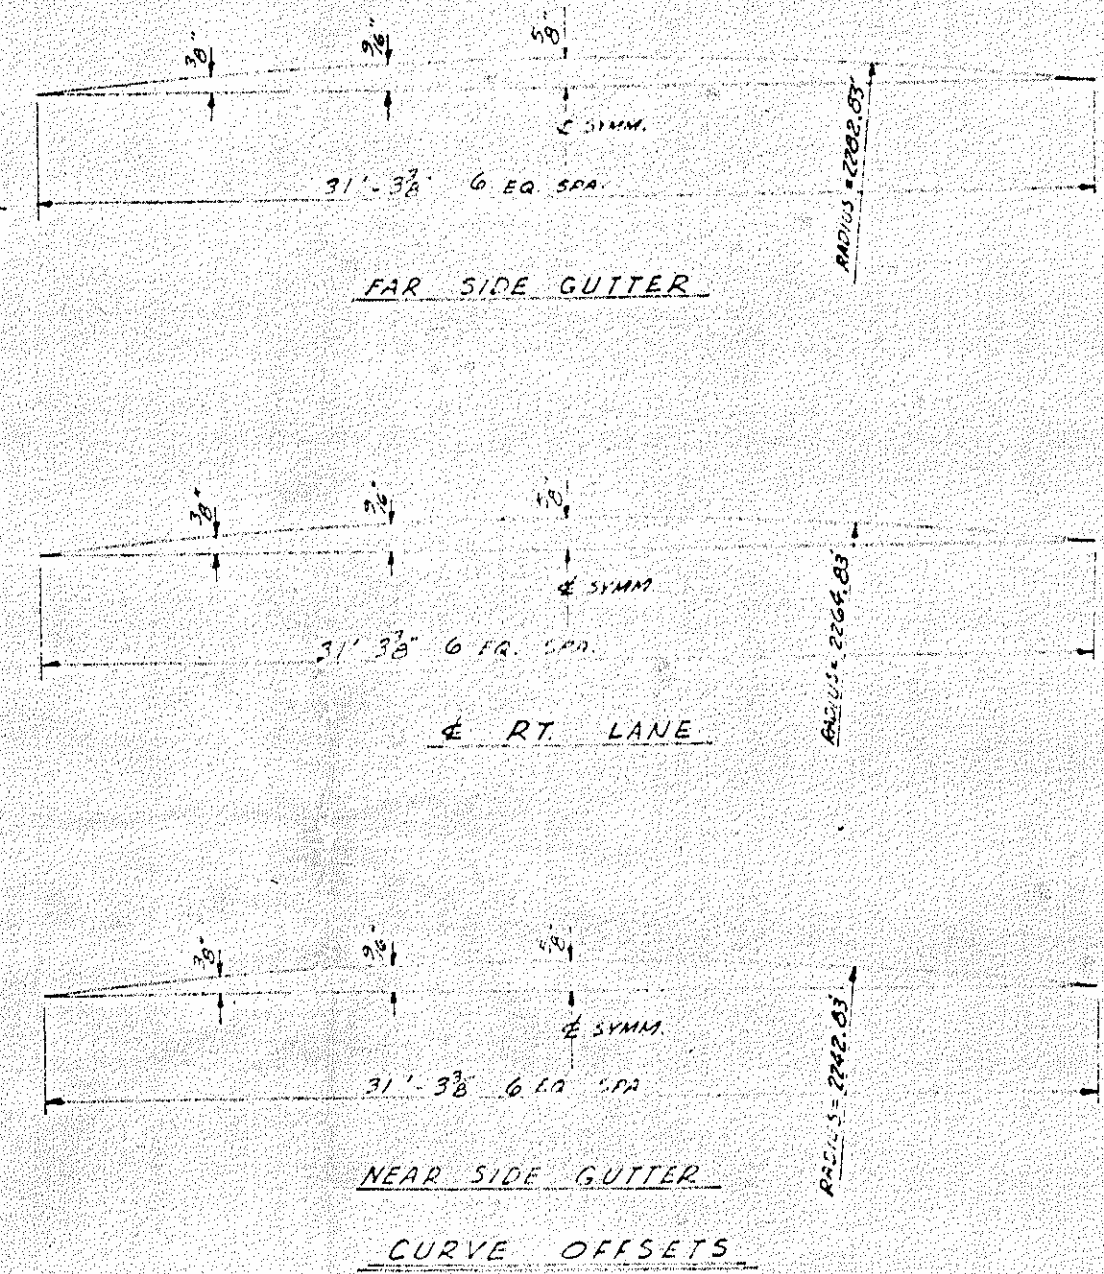 3/8" 9/16" 5/8"
℄ SYMM.
31'-3 3/8" 6 EQ. SPA.
RADIUS = 2282.83'
FAR SIDE GUTTER
3/8" 9/16" 5/8"
℄ SYMM
31' 3 3/8" 6 EQ. SPA.
RADIUS = 2264.83'
℄ RT. LANE
3/8" 9/16" 5/8"
℄ SYMM.
31'-3 3/8" 6 EQ SPA
RADIUS = 2242.83'
NEAR SIDE GUTTER
CURVE OFFSETS